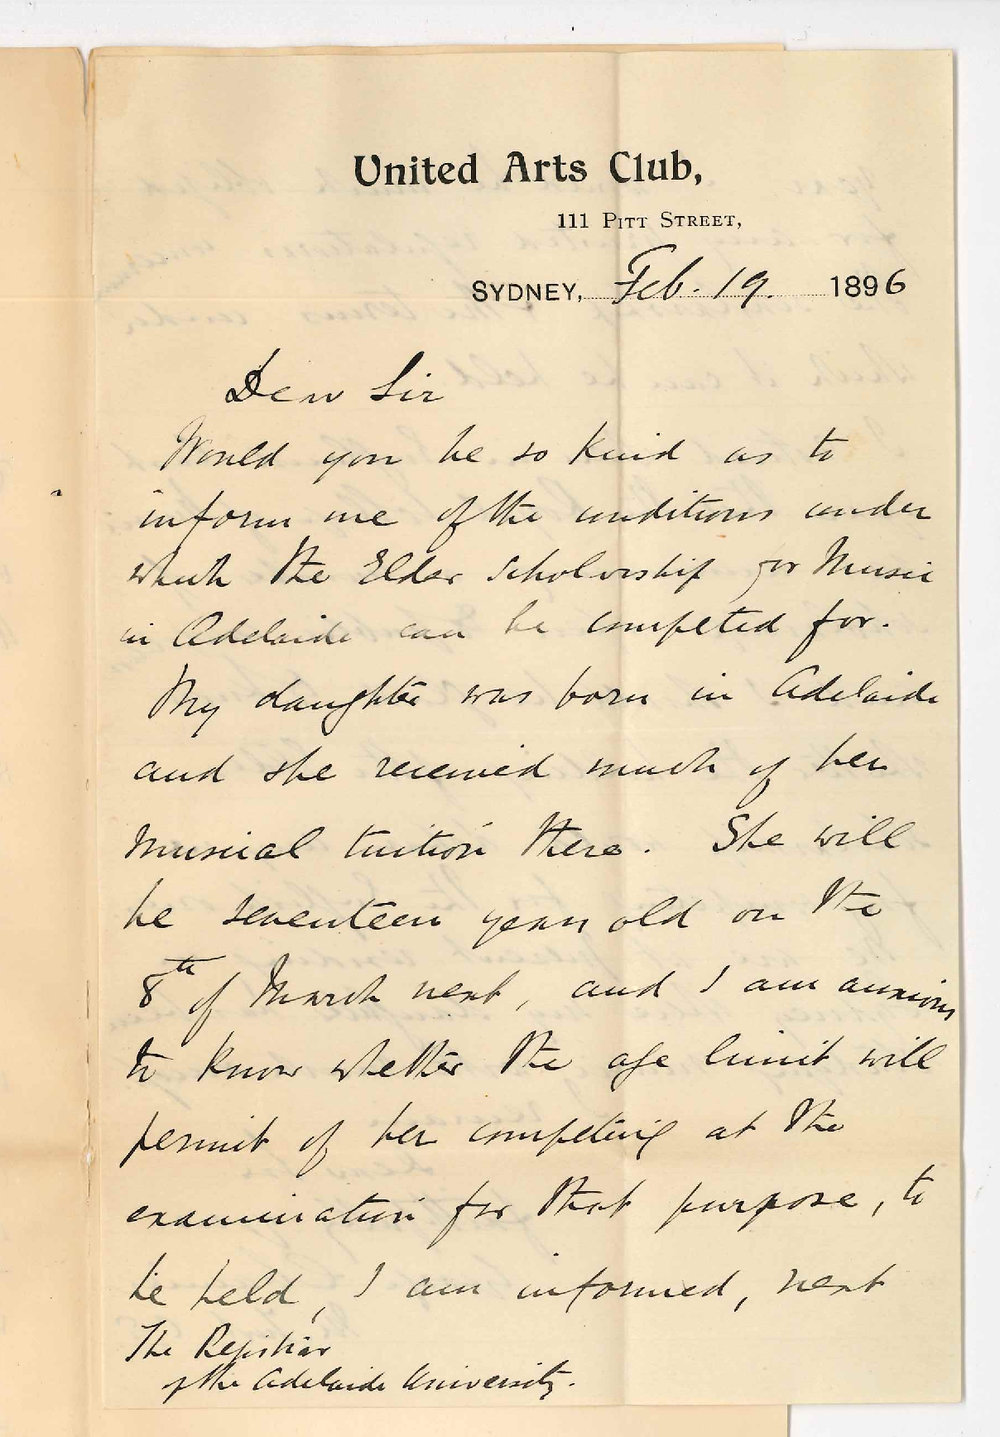 United Arts Club,
111 Pitt Street,
Sydney, Feb. 19. 1896
Dear Sir
Would you be so kind as to
inform me of the conditions under
which the Elder Scholarship for Music
in Adelaide can be competed for.
My daughter was born in Adelaide
and she received much of her
musical tuition there. She will
be seventeen years old on the
8th of March next, and I am anxious
to know whether the age limit will
permit of her competing at the
examination for that purpose, to
be held, I am informed, next
The Registrar
of the Adelaide University.